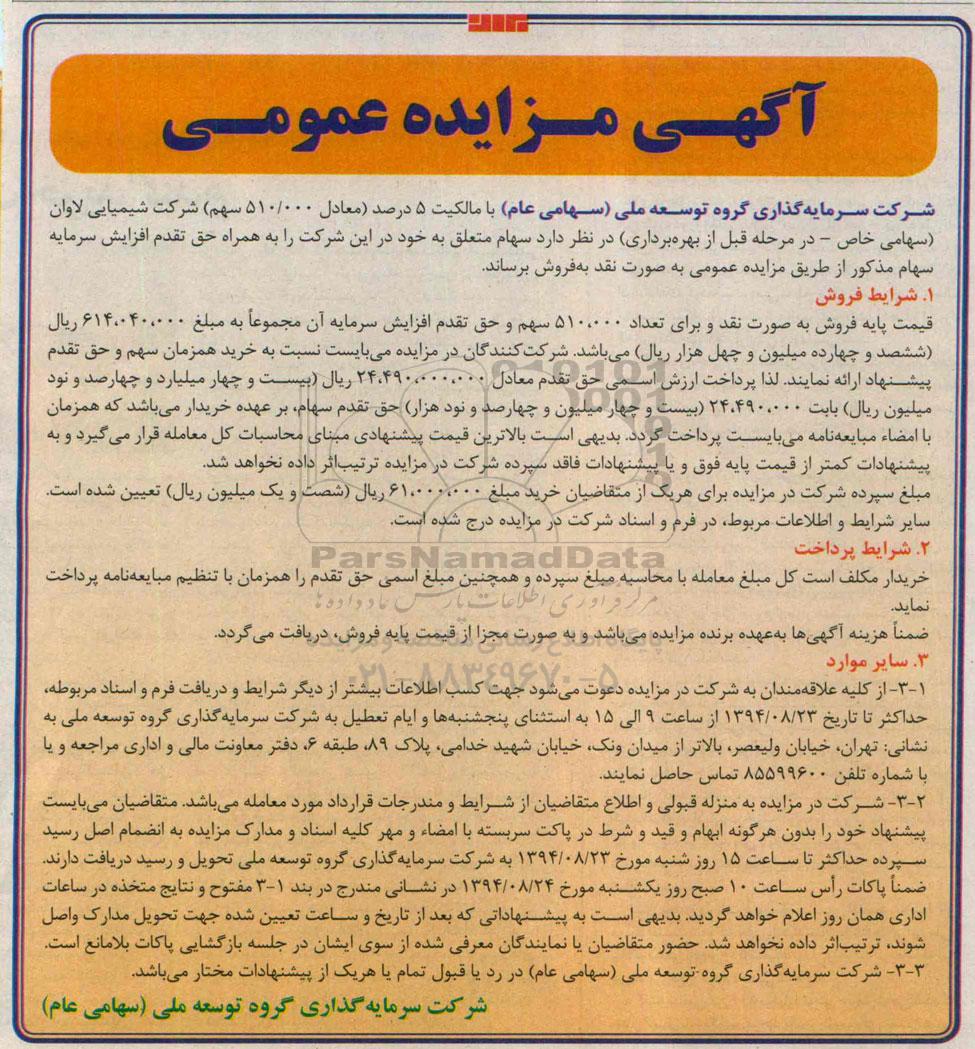 آگهی مزایده عمومی
شرکت سرمایه‌گذاری گروه توسعه ملی (سهامی عام) با مالکیت ۵ درصد (معادل ۵۱۰/۰۰۰ سهم) شرکت شیمیایی لاوان
(سهامی خاص – در مرحله قبل از بهره‌برداری) در نظر دارد سهام متعلق به خود در این شرکت را به همراه حق تقدم افزایش سرمایه
سهام مذکور از طریق مزایده عمومی به صورت نقد به‌فروش برساند.
۱. شرایط فروش
قیمت پایه فروش به صورت نقد و برای تعداد ۵۱۰،۰۰۰ سهم و حق تقدم افزایش سرمایه آن مجموعاً به مبلغ ۶۱۴،۰۴۰،۰۰۰ ریال
(ششصد و چهارده میلیون و چهل هزار ریال) می‌باشد. شرکت‌کنندگان در مزایده می‌بایست نسبت به خرید همزمان سهم و حق تقدم
پیشنهاد ارائه نمایند. لذا پرداخت ارزش اسمی حق تقدم معادل ۲۴،۴۹۰،۰۰۰،۰۰۰ ریال (بیست و چهار میلیارد و چهارصد و نود
میلیون ریال) بابت ۲۴،۴۹۰،۰۰۰ (بیست و چهار میلیون و چهارصد و نود هزار) حق تقدم سهام، بر عهده خریدار می‌باشد که همزمان
با امضاء مبایعه‌نامه می‌بایست پرداخت گردد. بدیهی است بالاترین قیمت پیشنهادی مبنای محاسبات کل معامله قرار می‌گیرد و به
پیشنهادات کمتر از قیمت پایه فوق و یا پیشنهادات فاقد سپرده شرکت در مزایده ترتیب‌اثر داده نخواهد شد.
مبلغ سپرده شرکت در مزایده برای هریک از متقاضیان خرید مبلغ ۶۱،۰۰۰،۰۰۰ ریال (شصت و یک میلیون ریال) تعیین شده است.
سایر شرایط و اطلاعات مربوط، در فرم و اسناد شرکت در مزایده درج شده است.
ParsNamadData
۲. شرایط پرداخت
خریدار مکلف است کل مبلغ معامله با محاسبه مبلغ سپرده و همچنین مبلغ اسمی حق تقدم را همزمان با تنظیم مبایعه‌نامه پرداخت
نماید.
مرکز فرآوری اطلاعات پارس نماد داده‌ها
ضمناً هزینه آگهی‌ها به‌عهده برنده مزایده می‌باشد و به صورت مجزا از قیمت پایه فروش، دریافت می‌گردد.
۳. سایر موارد
۰۲۱-۸۸۳۴۹۶۷۰-۵
۳-۱- از کلیه علاقه‌مندان به شرکت در مزایده دعوت می‌شود جهت کسب اطلاعات بیشتر از دیگر شرایط و دریافت فرم و اسناد مربوطه،
حداکثر تا تاریخ ۱۳۹۴/۰۸/۲۳ از ساعت ۹ الی ۱۵ به استثنای پنجشنبه‌ها و ایام تعطیل به شرکت سرمایه‌گذاری گروه توسعه ملی به
نشانی: تهران، خیابان ولیعصر، بالاتر از میدان ونک، خیابان شهید خدامی، پلاک ۸۹، طبقه ۶، دفتر معاونت مالی و اداری مراجعه و یا
با شماره تلفن ۸۵۵۹۹۶۰۰ تماس حاصل نمایند.
۳-۲- شرکت در مزایده به منزله قبولی و اطلاع متقاضیان از شرایط و مندرجات قرارداد مورد معامله می‌باشد. متقاضیان می‌بایست
پیشنهاد خود را بدون هرگونه ابهام و قید و شرط در پاکت سربسته با امضاء و مهر کلیه اسناد و مدارک مزایده به انضمام اصل رسید
سپرده حداکثر تا ساعت ۱۵ روز شنبه مورخ ۱۳۹۴/۰۸/۲۳ به شرکت سرمایه‌گذاری گروه توسعه ملی تحویل و رسید دریافت دارند.
ضمناً پاکات رأس ساعت ۱۰ صبح روز یکشنبه مورخ ۱۳۹۴/۰۸/۲۴ در نشانی مندرج در بند ۱-۳ مفتوح و نتایج متخذه در ساعات
اداری همان روز اعلام خواهد گردید. بدیهی است به پیشنهاداتی که بعد از تاریخ و ساعت تعیین شده جهت تحویل مدارک واصل
شوند، ترتیب‌اثر داده نخواهد شد. حضور متقاضیان یا نمایندگان معرفی شده از سوی ایشان در جلسه بازگشایی پاکات بلامانع است.
۳-۳- شرکت سرمایه‌گذاری گروه توسعه ملی (سهامی عام) در رد یا قبول تمام یا هریک از پیشنهادات مختار می‌باشد.
شرکت سرمایه‌گذاری گروه توسعه ملی (سهامی عام)